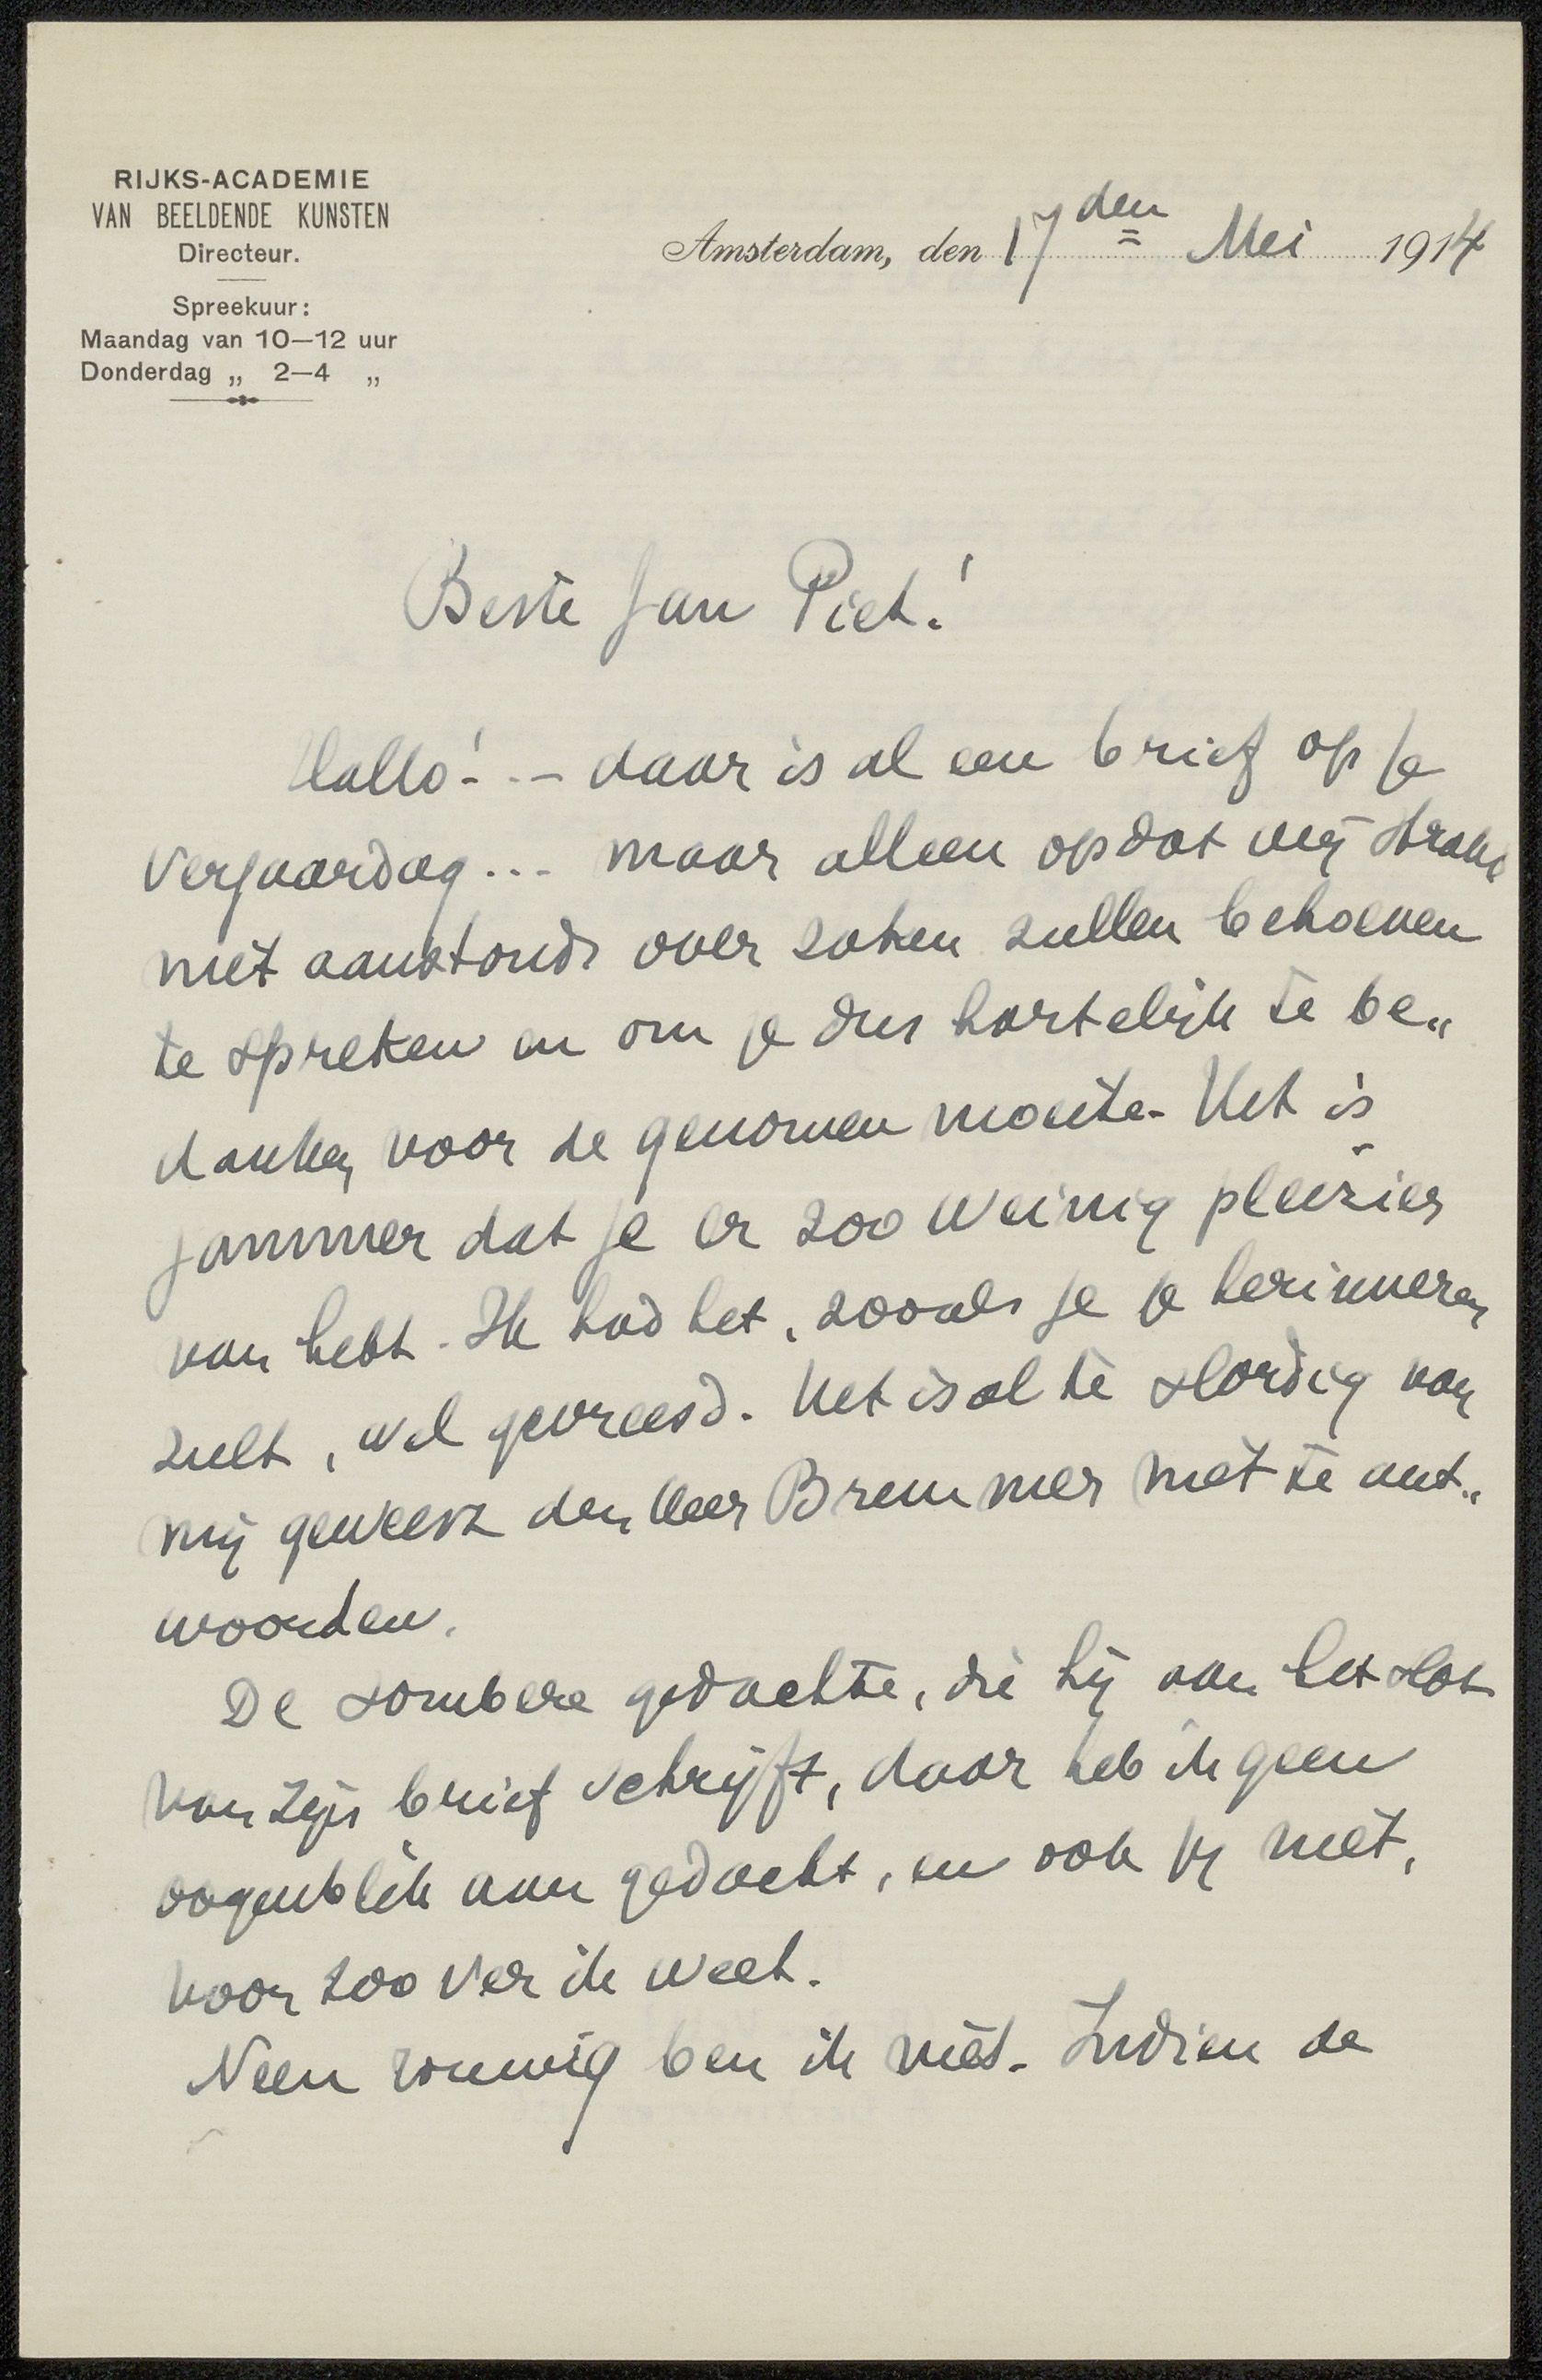 RIJKS-ACADEMIE
VAN BEELDENDE KUNSTEN
Directeur.
Spreekuur:
Maandag van 10—12 uur
Donderdag „ 2—4 „
Amsterdam, den 17den Mei 1914
Beste Jan Piet!
Hallo! -- daar is al een brief op je
verjaardag... maar alleen opdat wij straks
niet aanstonds over zaken zullen behoeven
te spreken en om je dus hartelijk te be„
danken voor de genomen moeite. Het is
jammer dat je er zoo weinig pleizier
van hebt. Ik had het, zooals je je herinneren
zult, wel gevreesd. Het is al te slordig van
mij geweest den Heer Bremmer niet te ant„
woorden.
De sombere gedachte, die hij aan het slot
van zijn brief schrijft, daar heb ik geen
oogenblik aan gedacht, en ook jij niet,
voor zoo ver ik weet.
Neen ben ik niet. Indien de